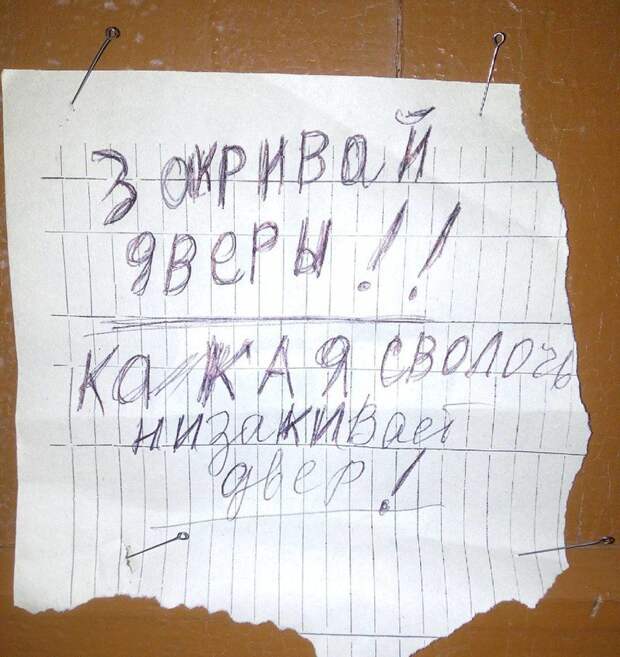 Закривай
дверы!!
какая сволочь
низакивает
двер!